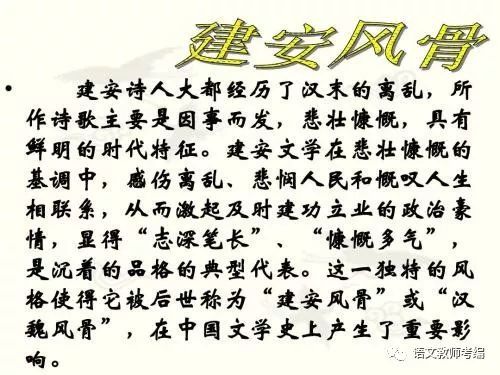 建安风骨
• 建安诗人大都经历了汉末的离乱，所
作诗歌主要是因事而发，悲壮慷慨，具有
鲜明的时代特征。建安文学在悲壮慷慨的
基调中，感伤离乱、悲悯人民和慨叹人生
相联系，从而激起及时建功立业的政治豪
情，显得“志深笔长”、“慷慨多气”，
是沉着的品格的典型代表。这一独特的风
格使得它被后世称为“建安风骨”或“汉
魏风骨”，在中国文学史上产生了重要影
响。
语文教师考编